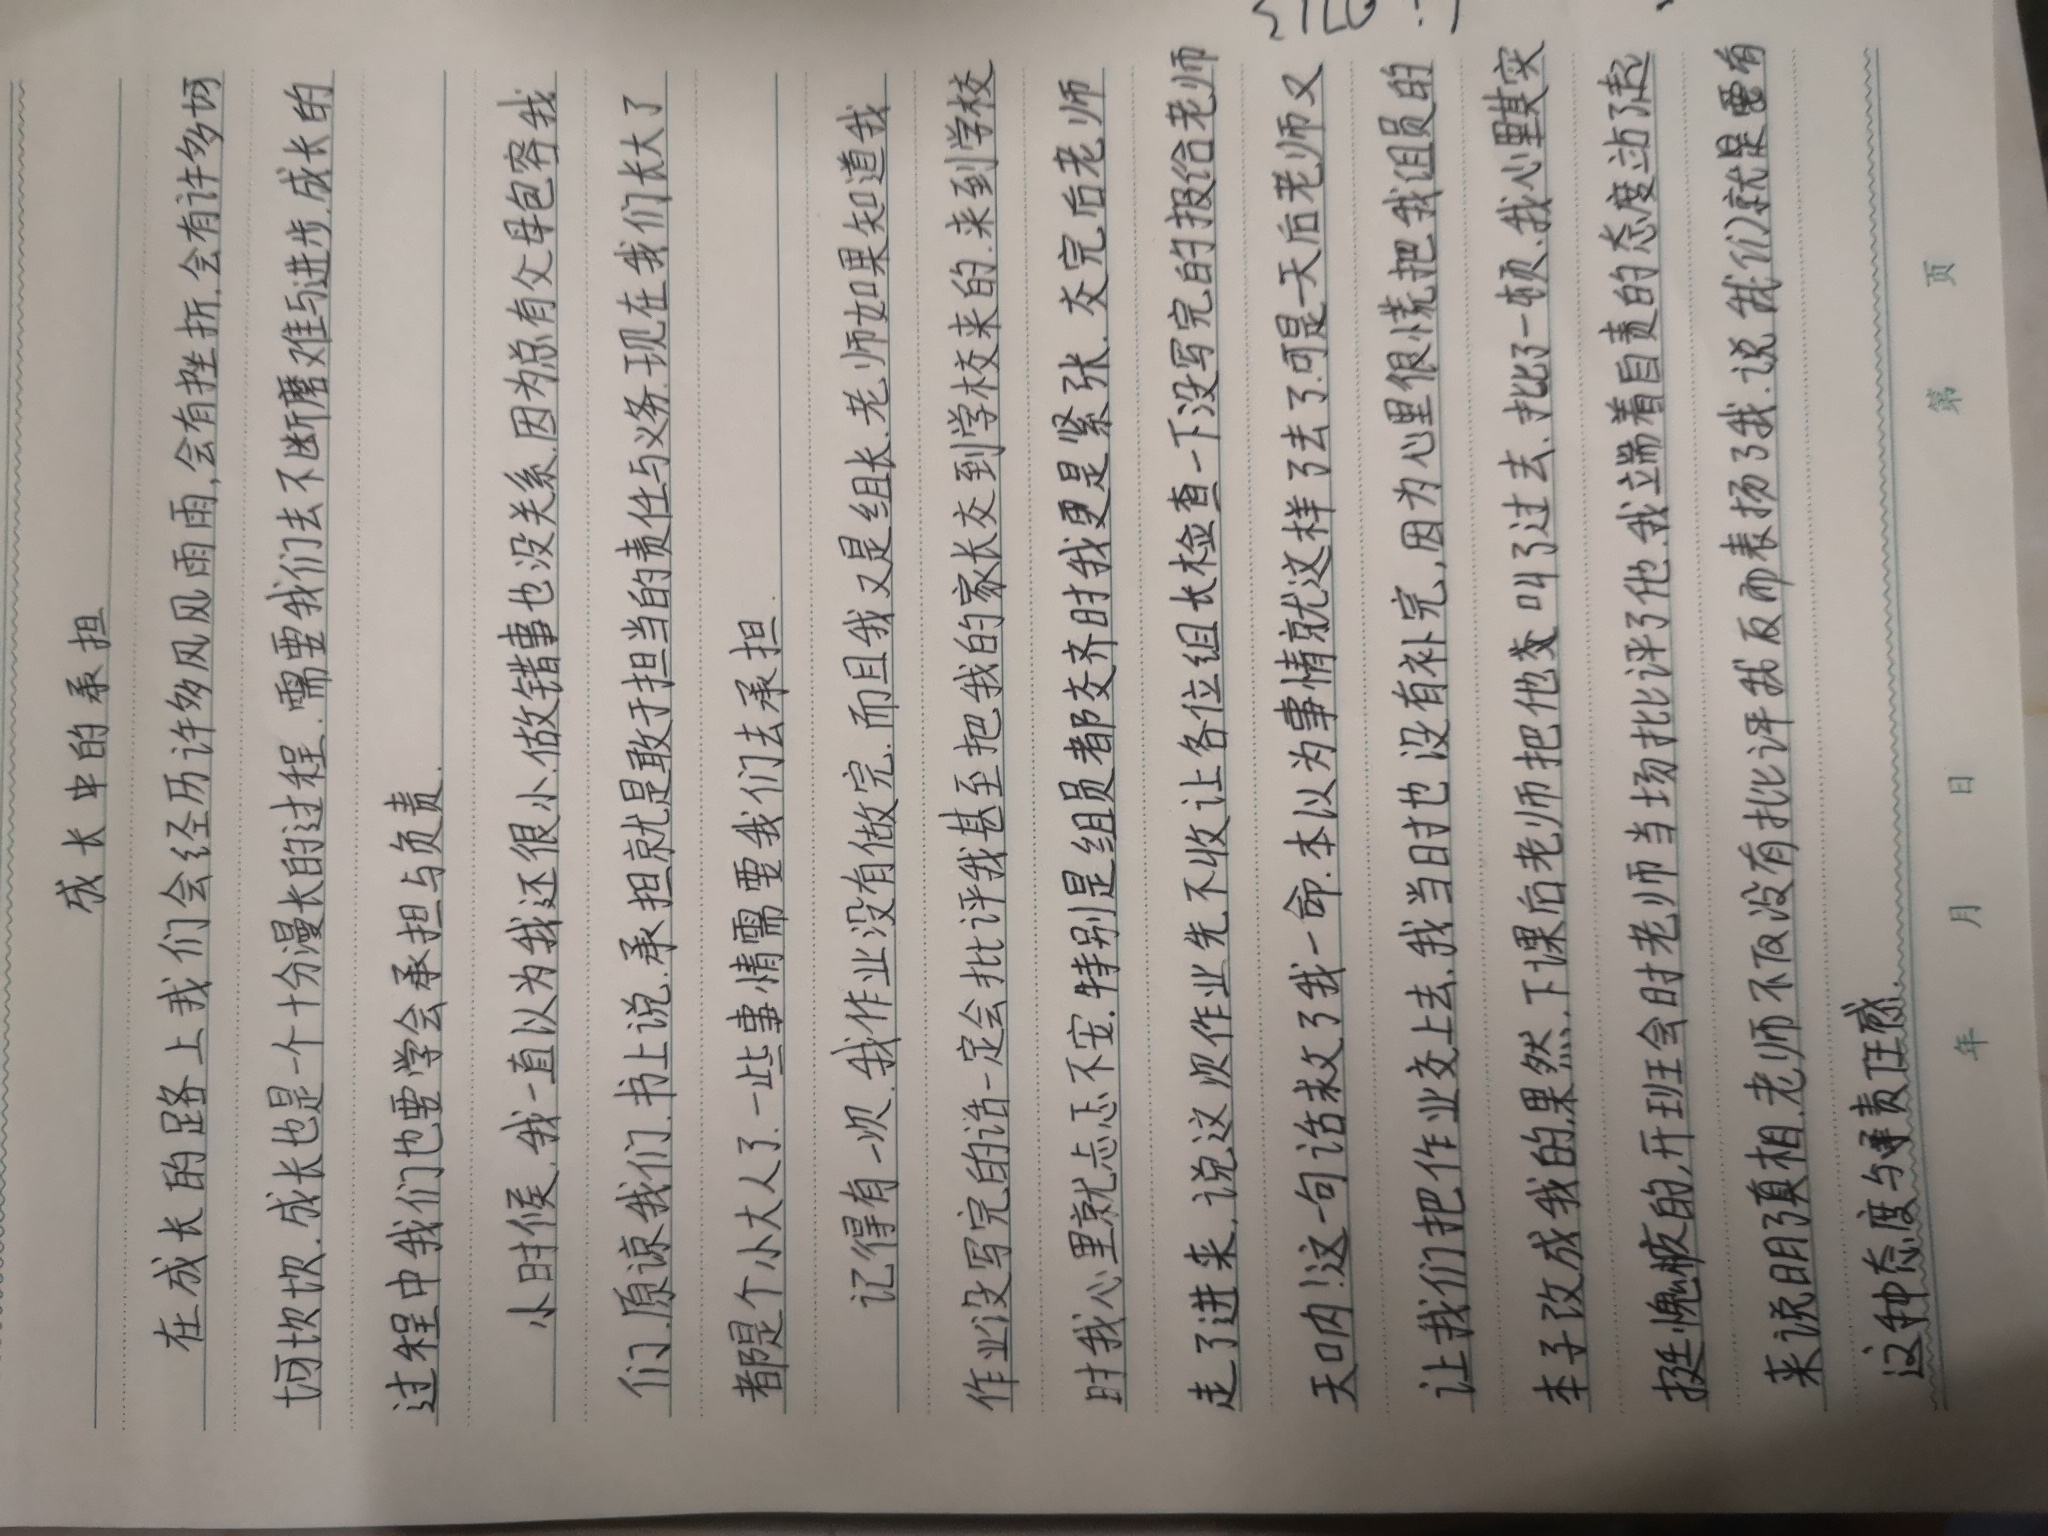 成长中的承担
在成长的路上我们会经历许多风风雨雨,会有挫折.会有许多坷
坷坎坎.成长也是一个十分漫长的过程.需要我们去不断磨难与进步.成长的
过程中我们也要学会承担与负责.
小时候.我一直以为我还很小.做错事也没关系.因为总有父母包容我
们.原谅我们.书上说.承担就是敢于担当的责任与义务.现在我们长大了
都是个小大人了.一些事情需要我们去承担.
记得有一次.我作业没有做完.而且我又是组长.老师如果知道我
作业没写完的话一定会批评我甚至把我的家长交到学校来的.来到学校
时我心里就忐忑不安.特别是组员都交齐时我更是紧张.交完后老师
走了进来.说这次作业先不收让各位组长检查一下没写完的报给老师
天呐!这一句话救了我一命.本以为事情就这样了去了.可是一天后老师又
让我们把作业交上去.我当时也没有补完,因为心里很慌把我组员的
本子改成我的.果然.下课后老师把他叫了过去.批了一顿.我心里其实
挺愧疚的.开班会时老师当场批评了他.我立端着自责的态度站了起
来说明了真相.老师不仅没有批评我反而表扬了我.说我们就是要有
这种态度与责任感.
年 月 日 第 页